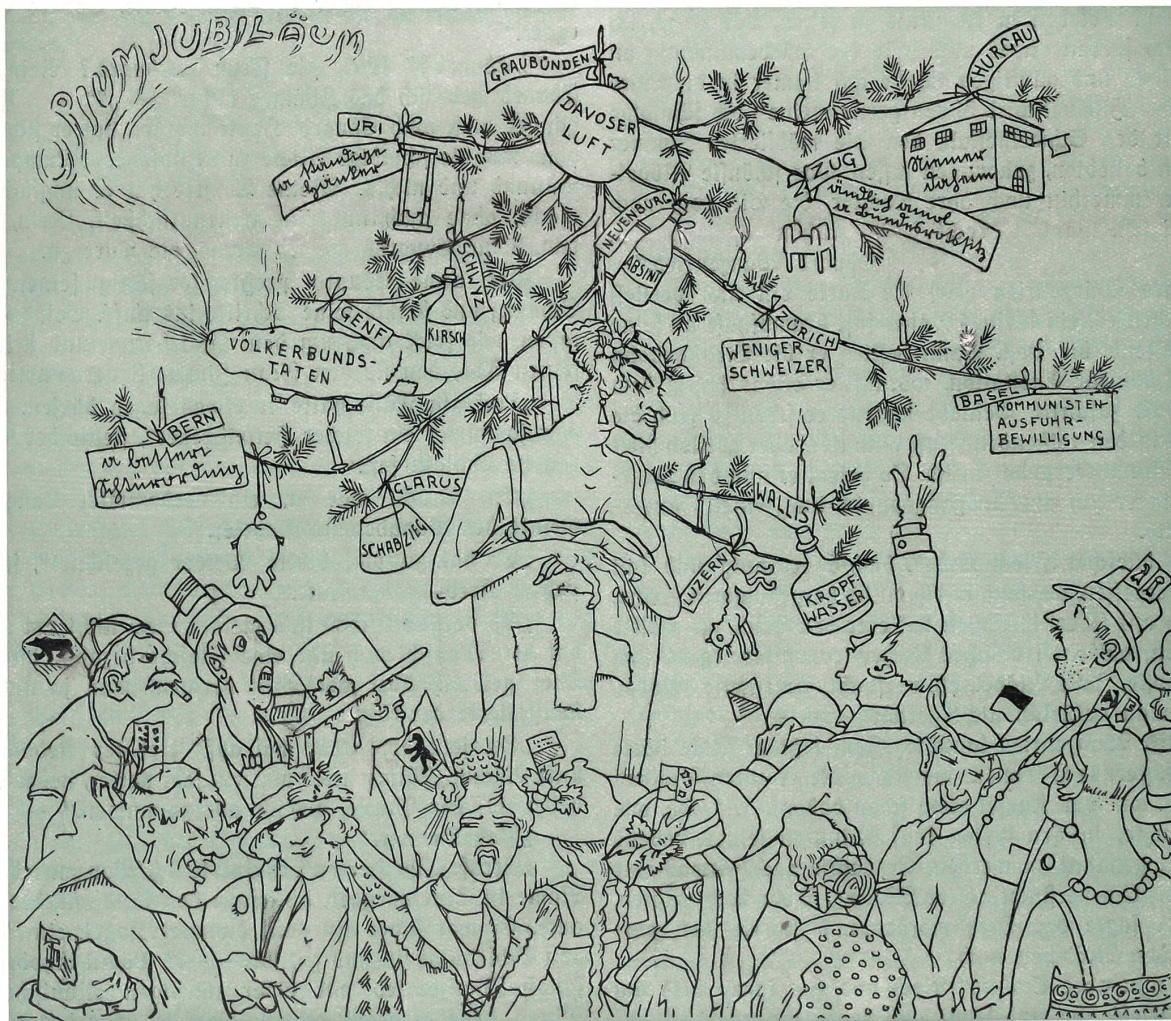 OPIUMJUBILÄUM
GRAUBÜNDEN
DAVOSER
LUFT
THURGAU
Niemer
daheim
URI
a ständige
Hänker
ZUG
ändlich amol
a Bundesrotssitz
NEUENBURG
ABSINT
SCHWYZ
KIRSCH
GENF
VÖLKERBUNDS-
TATEN
ZÜRICH
WENIGER
SCHWEIZER
BASEL
KOMMUNISTEN-
AUSFUHR-
BEWILLIGUNG
BERN
a bessere
Schtürordnig
GLARUS
SCHABZIEG
WALLIS
KROPF-
WASSER
LUZERN